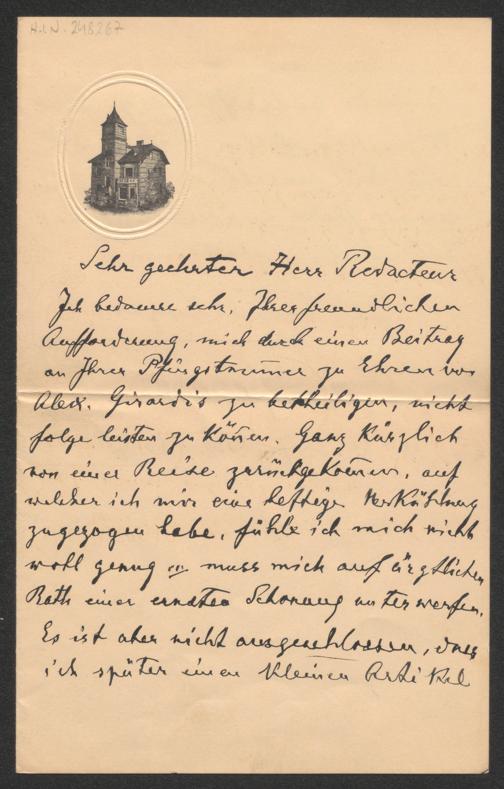 H.I.N. 248267
Sehr geehrter Herr Redacteur
Ich bedaure sehr, Ihrer freundlichen
Aufforderung, mich durch einen Beitrag
an Ihrer Pfingstnummer zu Ehren von
Alex. Girardis zu betheiligen, nicht
folge leisten zu können. Ganz kürzlich
von einer Reise zurückgekommen, auf
welcher ich mir eine heftige Verkühlung
zugezogen habe, fühle ich mich nicht
wohl genug u. muss mich auf ärztlichen
Rath einer ernsten Schonung unterwerfen.
Es ist aber nicht ausgeschlossen, dass
ich später einen kleinen Artikel